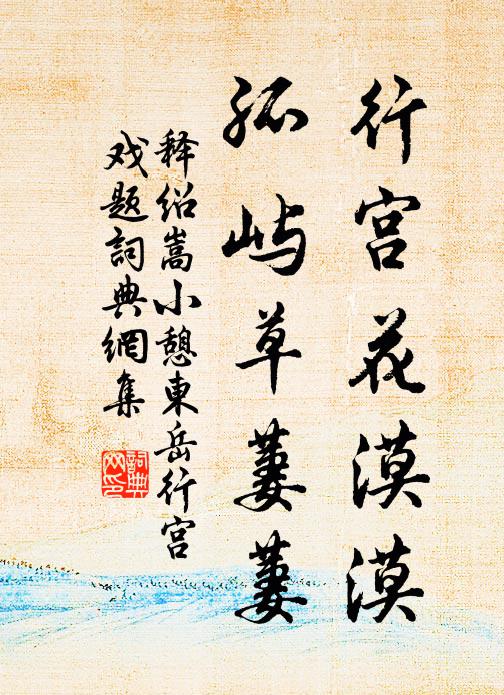 行宫花漠漠
孤屿草萋萋
释绍嵩小憩東岳行宫
戏题詞典網集
詞典网印